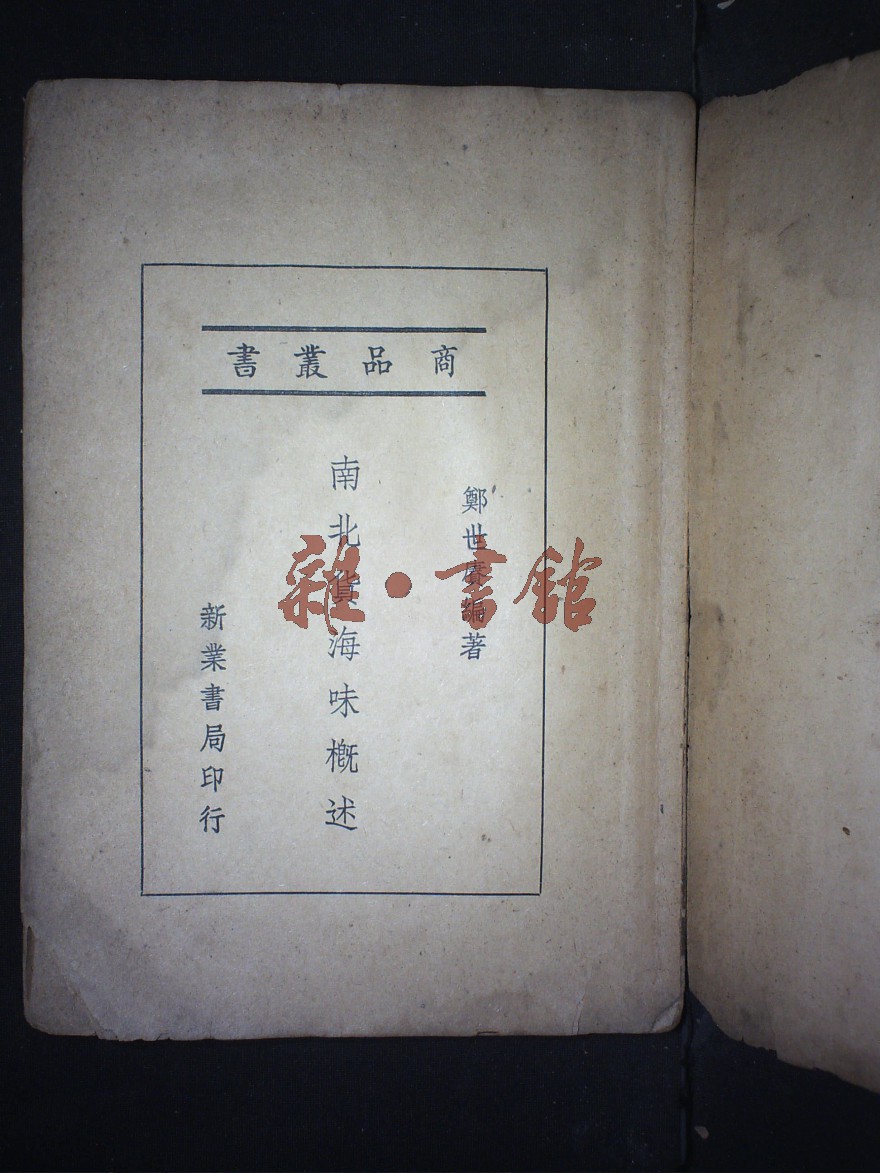 商品叢書
鄭世編著
南北貨海味概述
新業書局印行
雜·書館